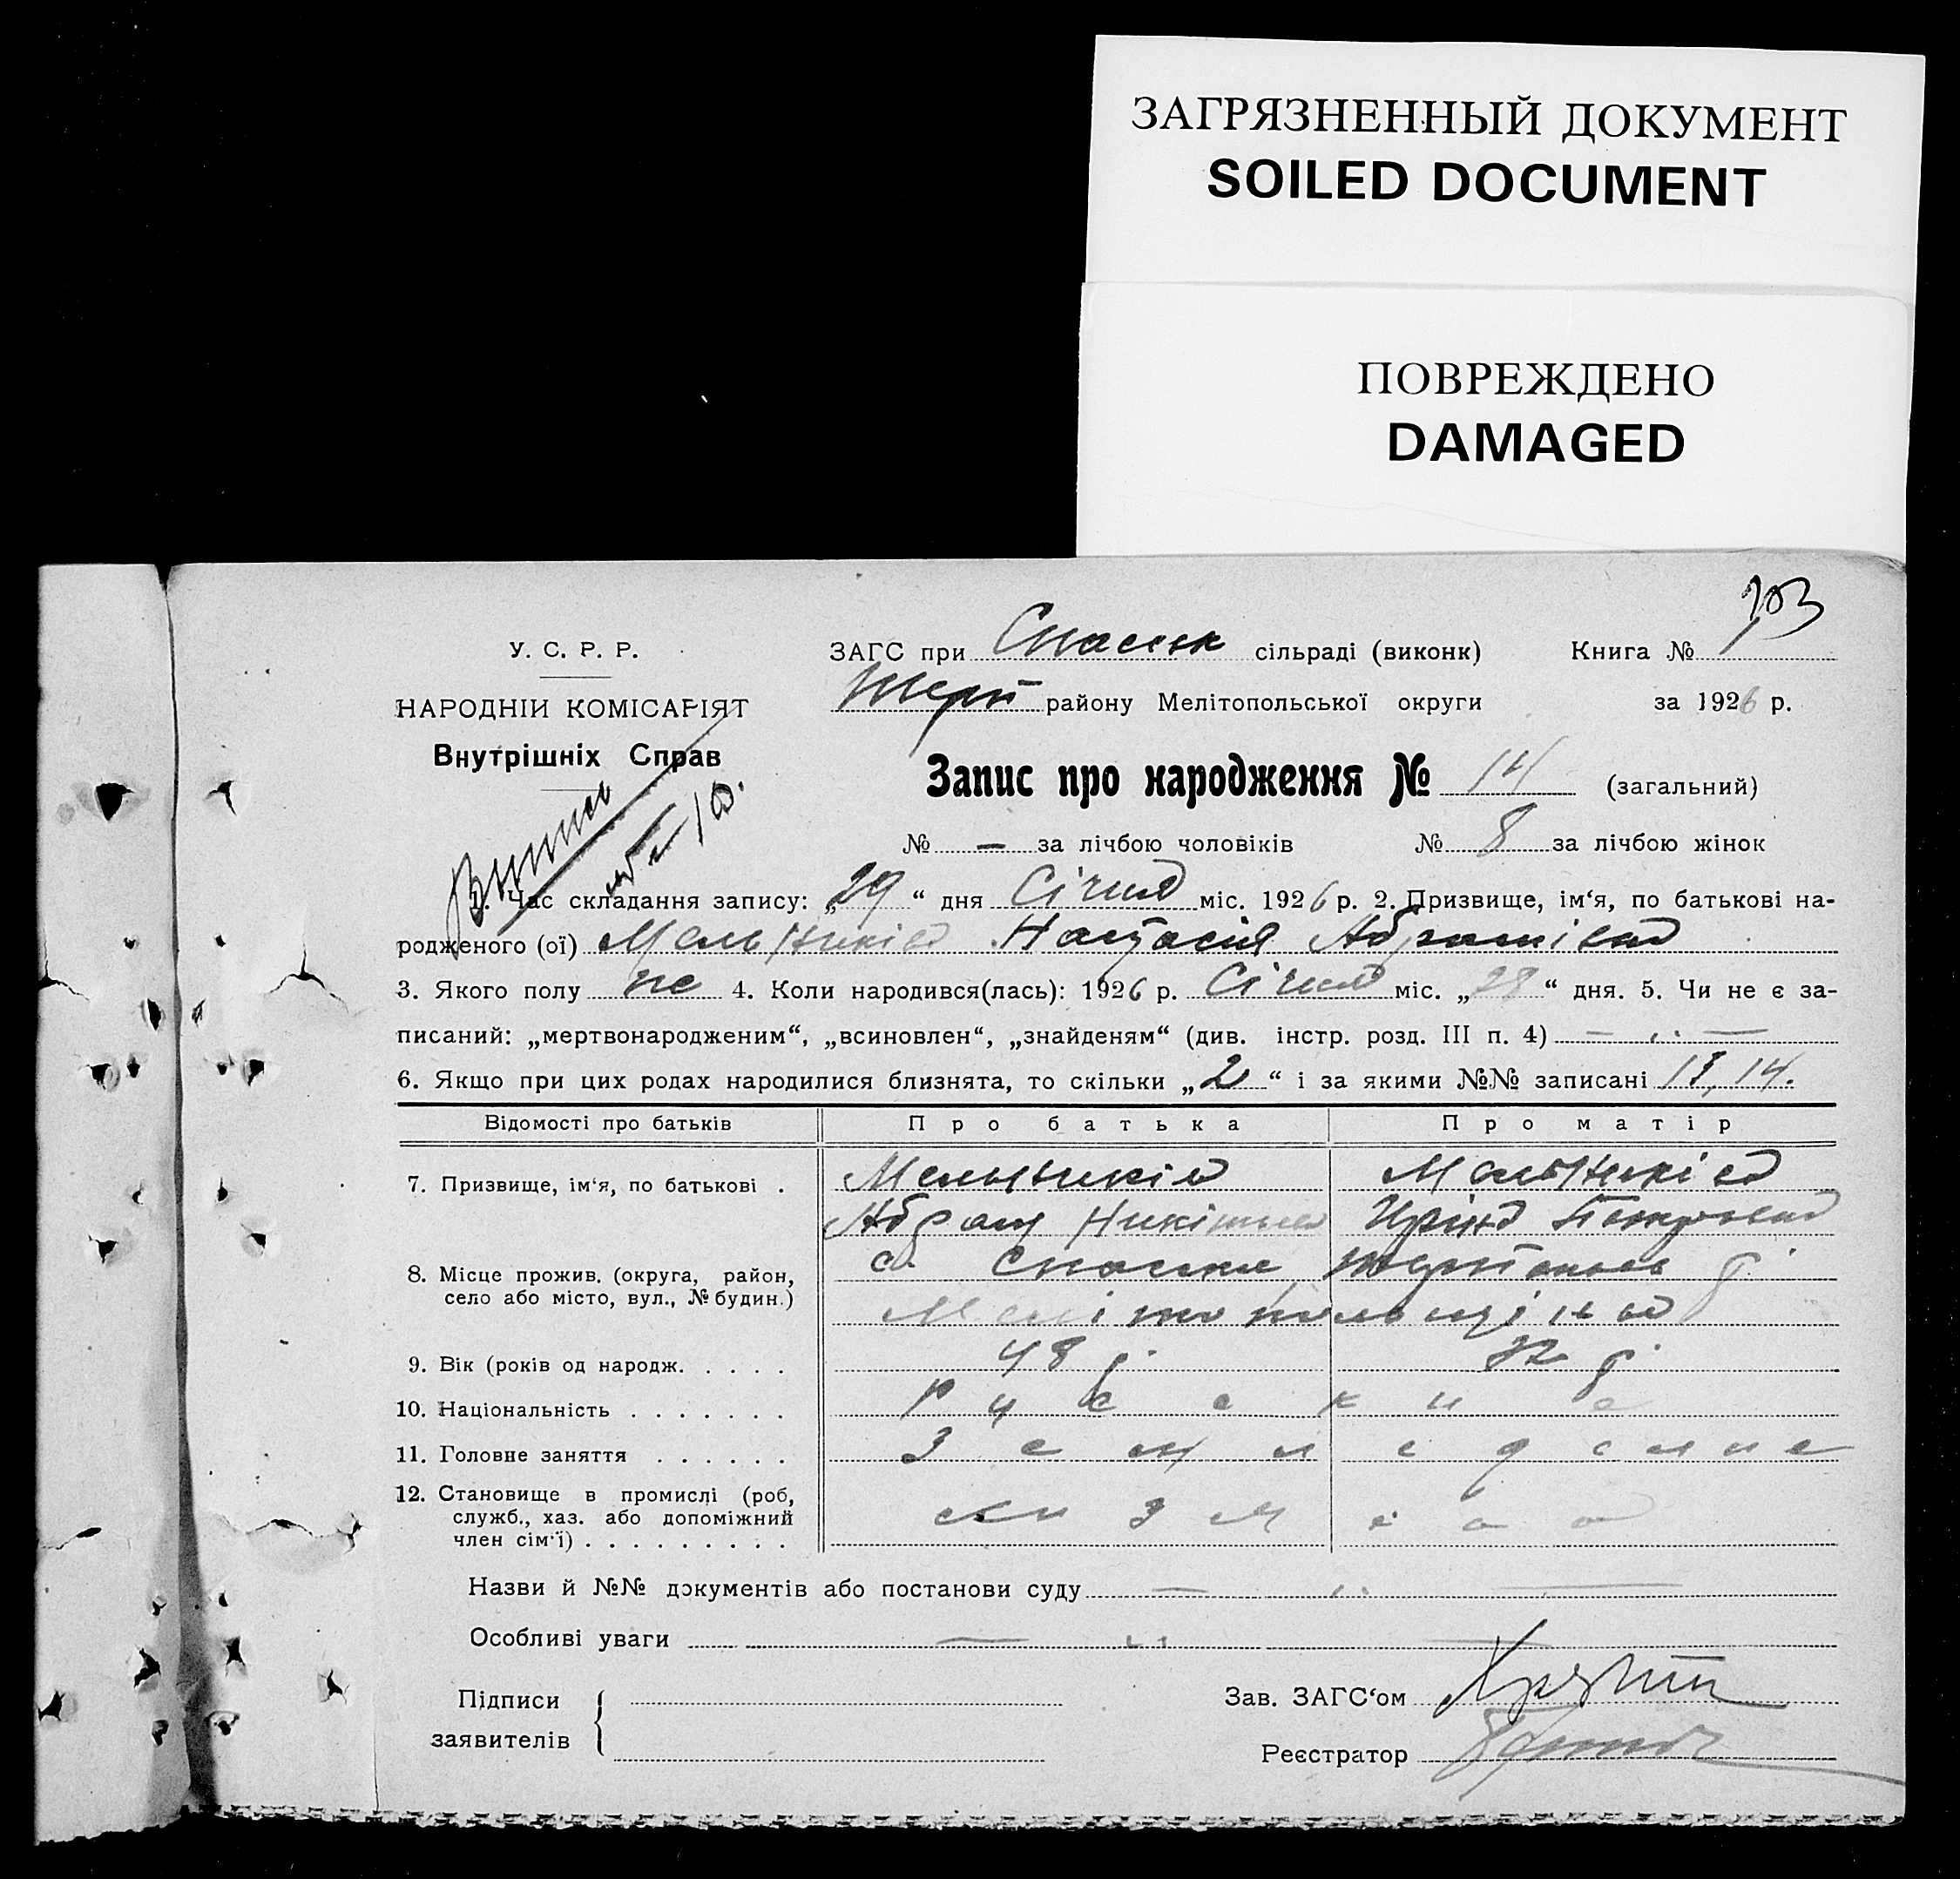 ЗАГРЯЗНЕННЫЙ ДОКУМЕНТ
SOILED DOCUMENT
ПОВРЕЖДЕНО
DAMAGED
103
У. С. Р. Р.
ЗАГС при Спаськ сільраді (виконк) Книга №
НАРОДНІЙ КОМІСАРІЯТ
району Мелітопольської округи за 1926 р.
Внутрішніх Справ
Запис про народження № 14 (загальний)
№ — за лічбою чоловіків № 8 за лічбою жінок
1. Час складання запису: „29“ дня Січня міс. 1926 р. 2. Призвище, ім‘я, по батькові на-
родженого (ої) Мельників Настасія Абрамівна
3. Якого полу же 4. Коли народився(лась): 1926 р. Січня міс. „28“ дня. 5. Чи не є за-
писаний: „мертвонародженим“, „всиновлен“, „знайденям“ (див. інстр. розд. III п. 4) —〃—
6. Якщо при цих родах народилися близнята, то скільки „2“ і за якими №№ записані 13, 14.
Відомості про батьків Про батька Про матір
7. Призвище, ім‘я, по батькові . Мельників Мельників
Абрам Никі Петровна
8. Місце прожив. (округа, район, село або місто, вул., № будин.) с. Спаське р.
Мелітопольщіна
9. Вік (років од народж. . . . . 48 р. 32 р.
10. Національність . . . . . . . Руские
11. Головне заняття . . . . . .
12. Становище в промислі (роб,
служб., хаз. або допоміжний
член сім‘ї) . . . . . . . . .
Назви й №№ документів або постанови суду — 〃 —
Особливі уваги — 〃 —
Підписи
заявителів
Зав. ЗАГС‘ом
Реєстратор